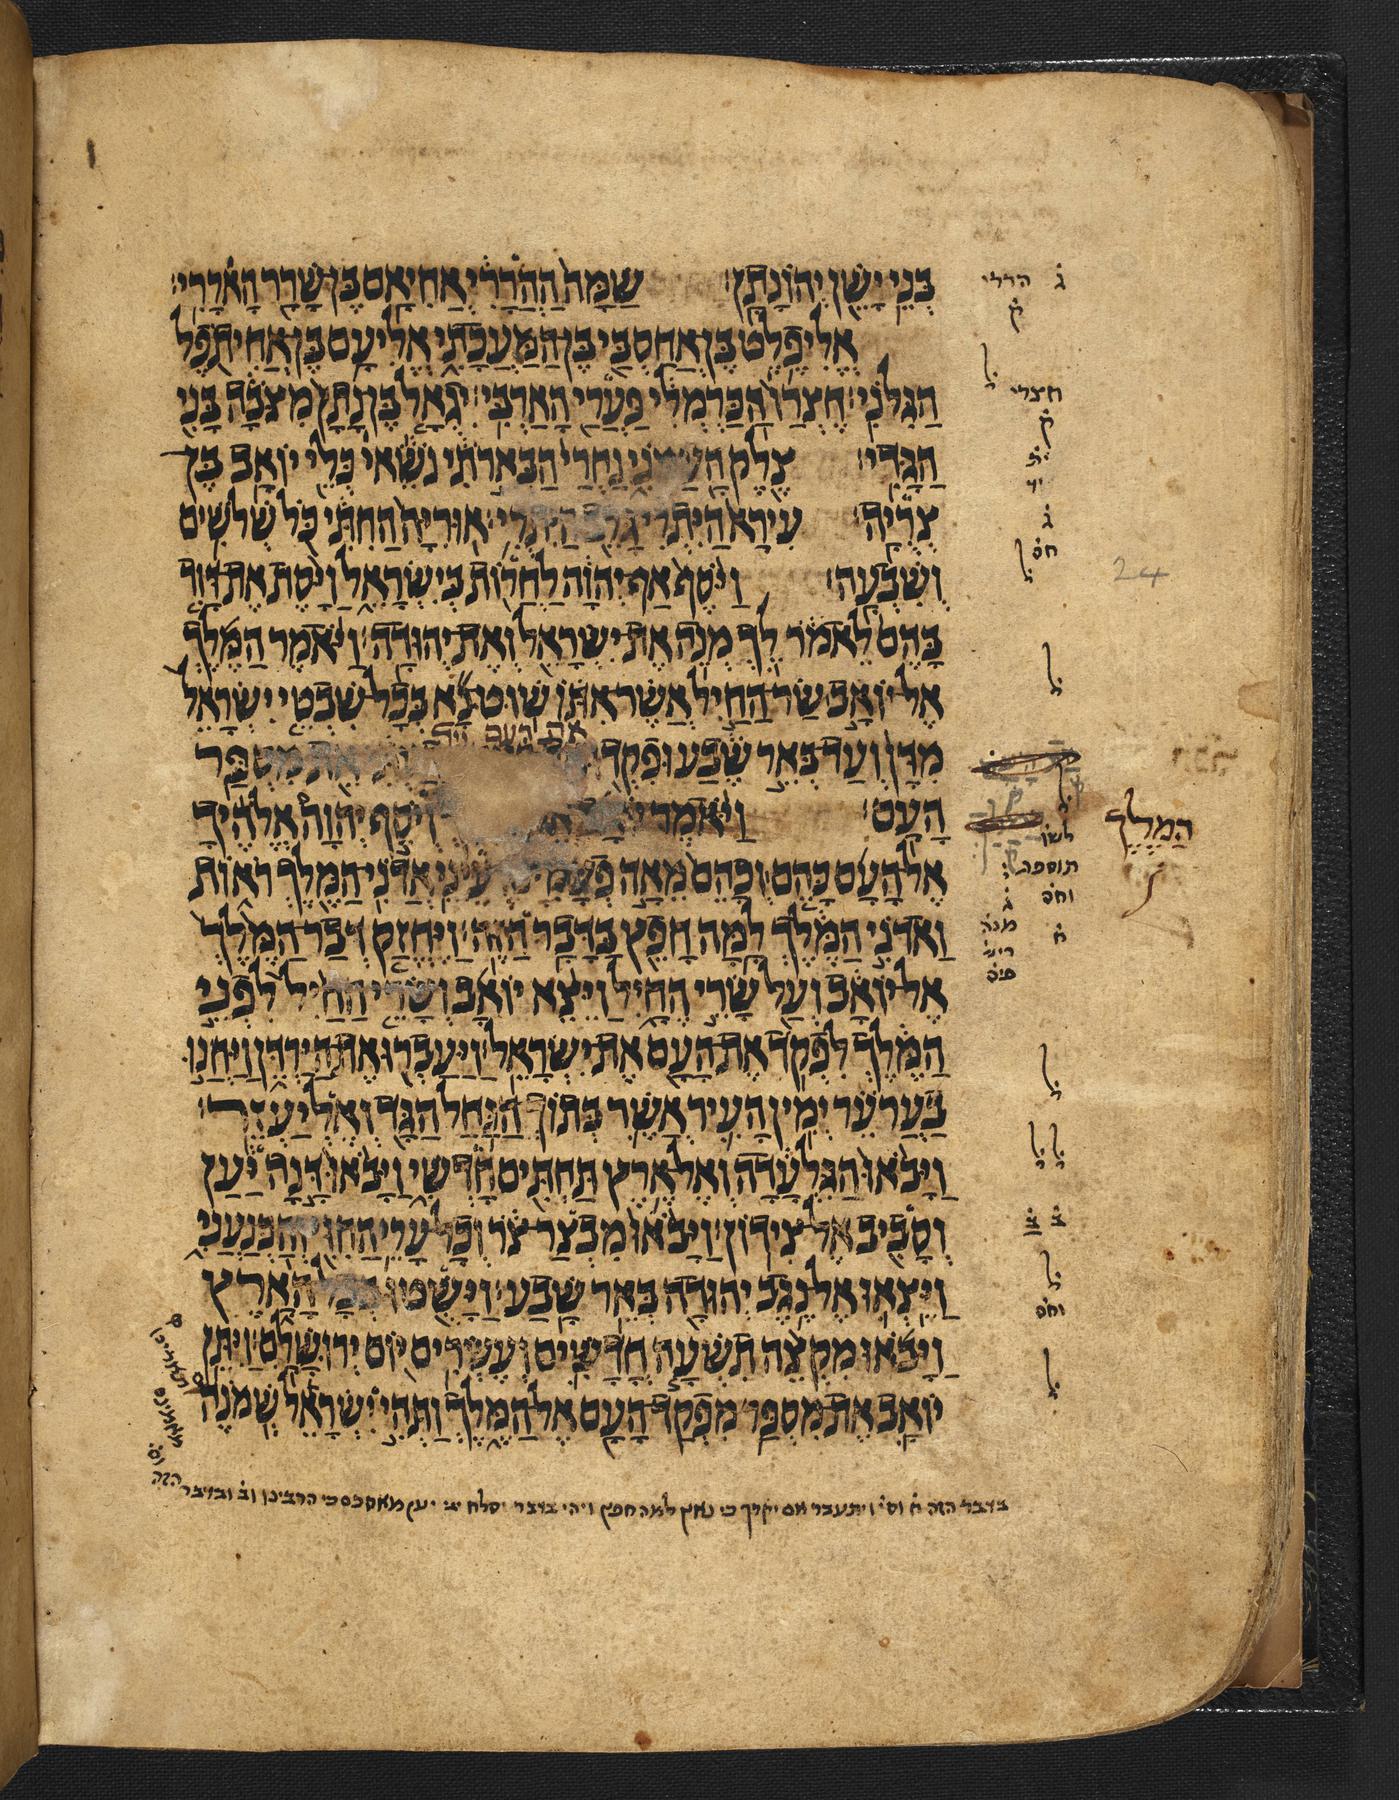 בְּנֵי יָשֵׁן יְהוֹנָתָן׃ שַׁמָּה הַהֲרָרִי אֲחִיאָם בֶּן שָׁרָר הָאֲרָרִי׃
אֱלִיפֶלֶט בֶּן אֲחַסְבַּי בֶּן הַמַּעֲכָתִי אֱלִיעָם בֶּן אֲחִיתֹפֶל
הַגִּלֹנִי׃ חֶצְרַו הַכַּרְמְלִי פַּעֲרַי הָאַרְבִּי׃ יִגְאָל בֶּן נָתָן מִצֹּבָה בָּנִי
הַגָּדִי׃ צֶלֶק הָעַמֹּנִי נַחְרַי הַבְּאֵרֹתִי נֹשְׂאֵי כְּלֵי יוֹאָב בֶּן
צְרֻיָה׃ עִירָא הַיִּתְרִי גָּרֵב הַיִּתְרִי׃ אוּרִיָּה הַחִתִּי כֹּל שְׁלֹשִׁים
וְשִׁבְעָה׃ וַיֹּסֶף אַף יְהוָה לַחֲרוֹת בְּיִשְׂרָאֵל וַיָּסֶת אֶת דָּוִד
בָּהֶם לֵאמֹר לֵךְ מְנֵה אֶת יִשְׂרָאֵל וְאֶת יְהוּדָה׃ וַיֹּאמֶר הַמֶּלֶךְ
אֶל יוֹאָב שַׂר הַחַיִל אֲשֶׁר אִתּוֹ שׁוּט נָא בְּכָל שִׁבְטֵי יִשְׂרָאֵל
את העם
מִדָּן וְעַד בְּאֵר שֶׁבַע וּפִקְדוּ אֶת מִסְפַּר
הָעָם׃ וַיֹּאמֶר וְיוֹסֵף יְהוָה אֱלֹהֶיךָ
אֶל הָעָם כָּהֵם וְכָהֵם מֵאָה פְעָמִים עֵינֵי אֲדֹנִי הַמֶּלֶךְ רֹאוֹת
וַאדֹנִי הַמֶּלֶךְ לָמָּה חָפֵץ בַּדָּבָר הַזֶּה׃ וַיֶּחֱזַק דְּבַר הַמֶּלֶךְ
אֶל יוֹאָב וְעַל שָׂרֵי הֶחָיִל וַיֵּצֵא יוֹאָב וְשָׂרֵי הַחַיִל לִפְנֵי
הַמֶּלֶךְ לִפְקֹד אֶת הָעָם אֶת יִשְׂרָאֵל׃ וַיַּעַבְרוּ אֶת הַיַּרְדֵּן וַיַּחֲנוּ
בַעֲרֹעֵר יְמִין הָעִיר אֲשֶׁר בְּתוֹךְ הַנַּחַל הַגָּד וְאֶל יַעְזֵר׃
וַיָּבֹאוּ הַגִּלְעָדָה וְאֶל אֶרֶץ תַּחְתִּים חָדְשִׁי וַיָּבֹאוּ דָּנָה יַּעַן
וְסָבִיב אֶל צִידוֹן׃ וַיָּבֹאוּ מִבְצַר צֹר וְכָל עָרֵי הַחִוִּי וְהַכְּנַעֲנִי
וַיֵּצְאוּ אֶל נֶגֶב יְהוּדָה בְּאֵר שָׁבַע׃ וַיָּשֻׁטוּ בְּכָל הָאָרֶץ
וַיָּבֹאוּ מִקְצֵה תִשְׁעָה חֳדָשִׁים וְעֶשְׂרִים יוֹם יְרוּשָׁלִָם׃ וַיִּתֵּן
יוֹאָב אֶת מִסְפַּר מִפְקַד הָעָם אֶל הַמֶּלֶךְ וַתְּהִי יִשְׂרָאֵל שְׁמֹנֶה
בדבר הזה וס׳ ויתעבר אם יקרך כי נאץ למה חפץ ויהי בדבר יסלח הרבינו ובדבר
הזה
ג̇ הררי
ק̇
חצרי
ק̇
ית
יו
ג̇
חס̇
24
הַמֶּלֶךְ
לשו
תוספת
וחס̇
ג̇
מנה
ריש
פס̇
ב̇ ב̇
וחס̇